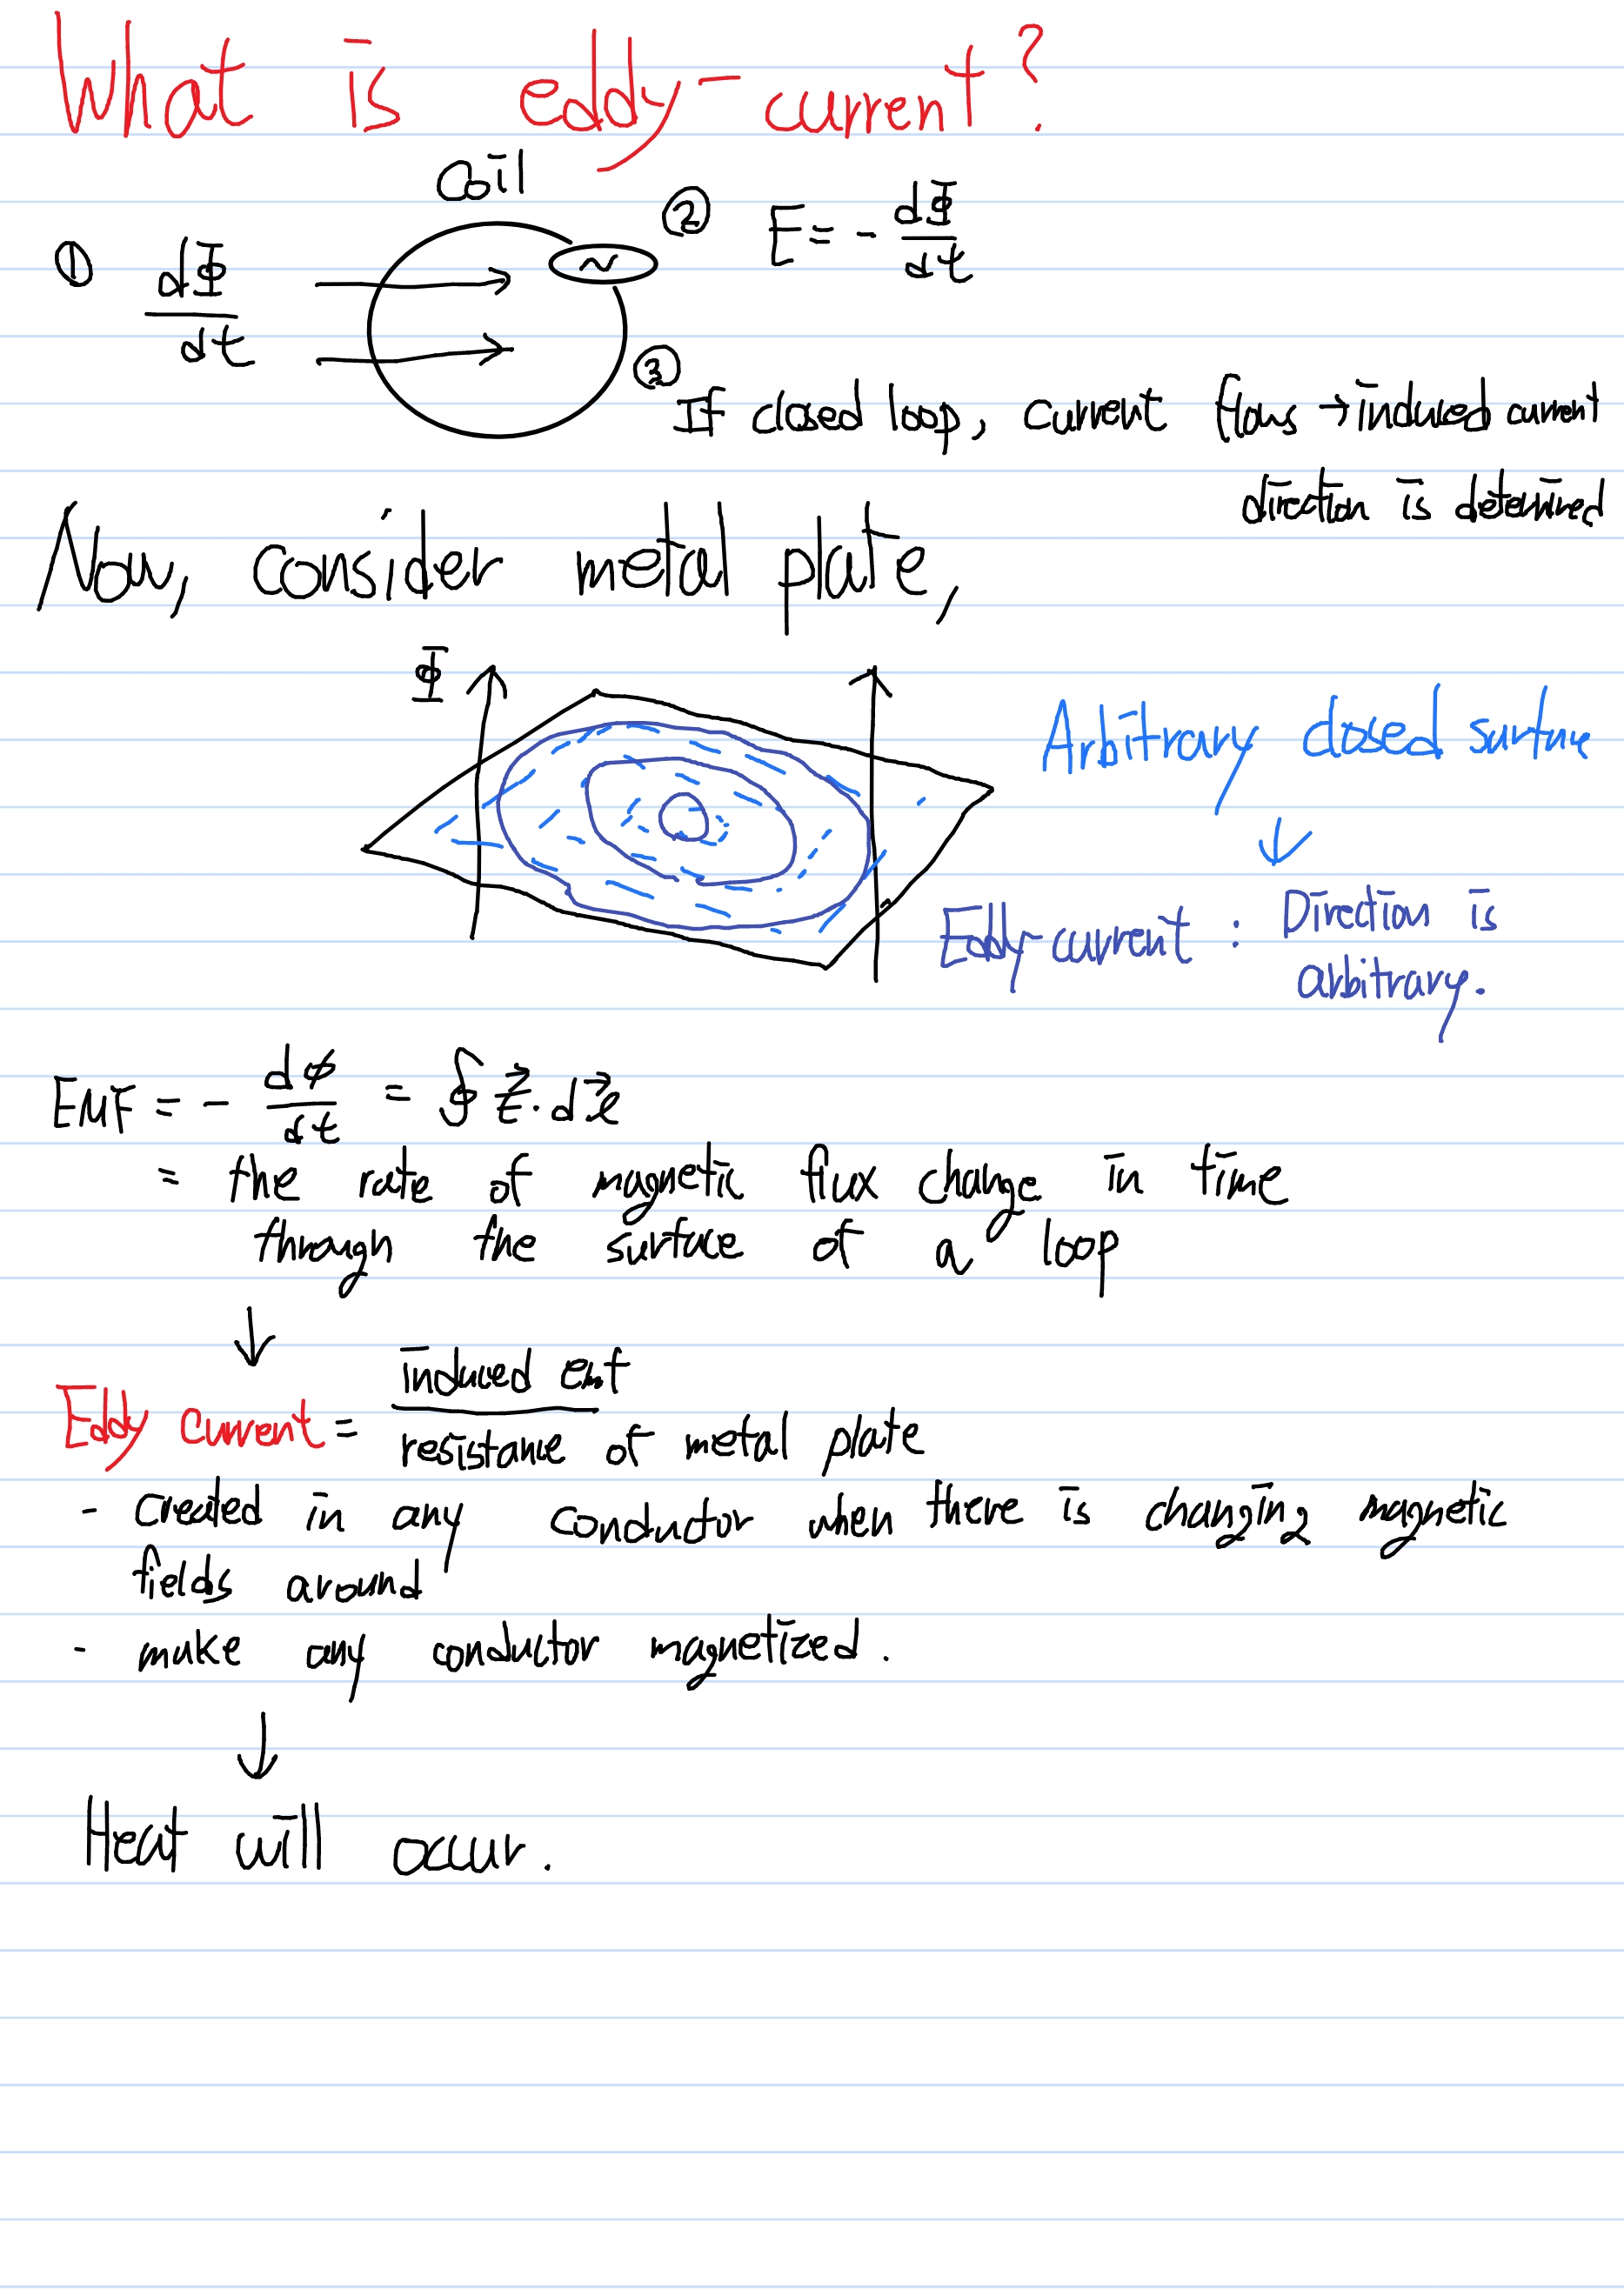 What is eddy-current?
Coil
① dΦ/dt
② E = - dΦ/dt
③ If closed loop, current flows → induced current
direction is determined
Now, consider metal plate,
Φ
Arbitrary closed surface
↓
Eddy-current : Direction is
arbitrary.
EMF = - dϕ/dt = ∮ E⃗ · dl⃗
= the rate of magnetic flux change in time
through the surface of a loop
↓
Eddy current = induced emf / resistance of metal plate
- created in any conductor when there is changing magnetic
fields around
- make any conductor magnetized.
↓
Heat will occur.